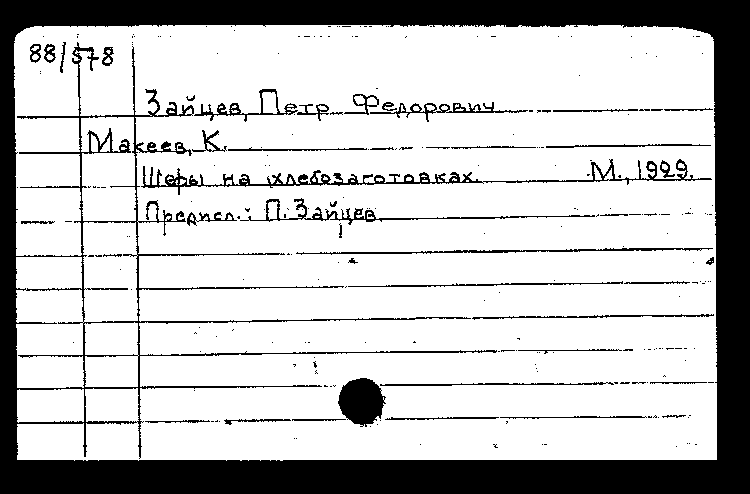 88/578
Зайцев, Петр Федорович
Макеев, К.
Шефы на хлебозаготовках. М., 1929.
Предисл.: П. Зайцев.